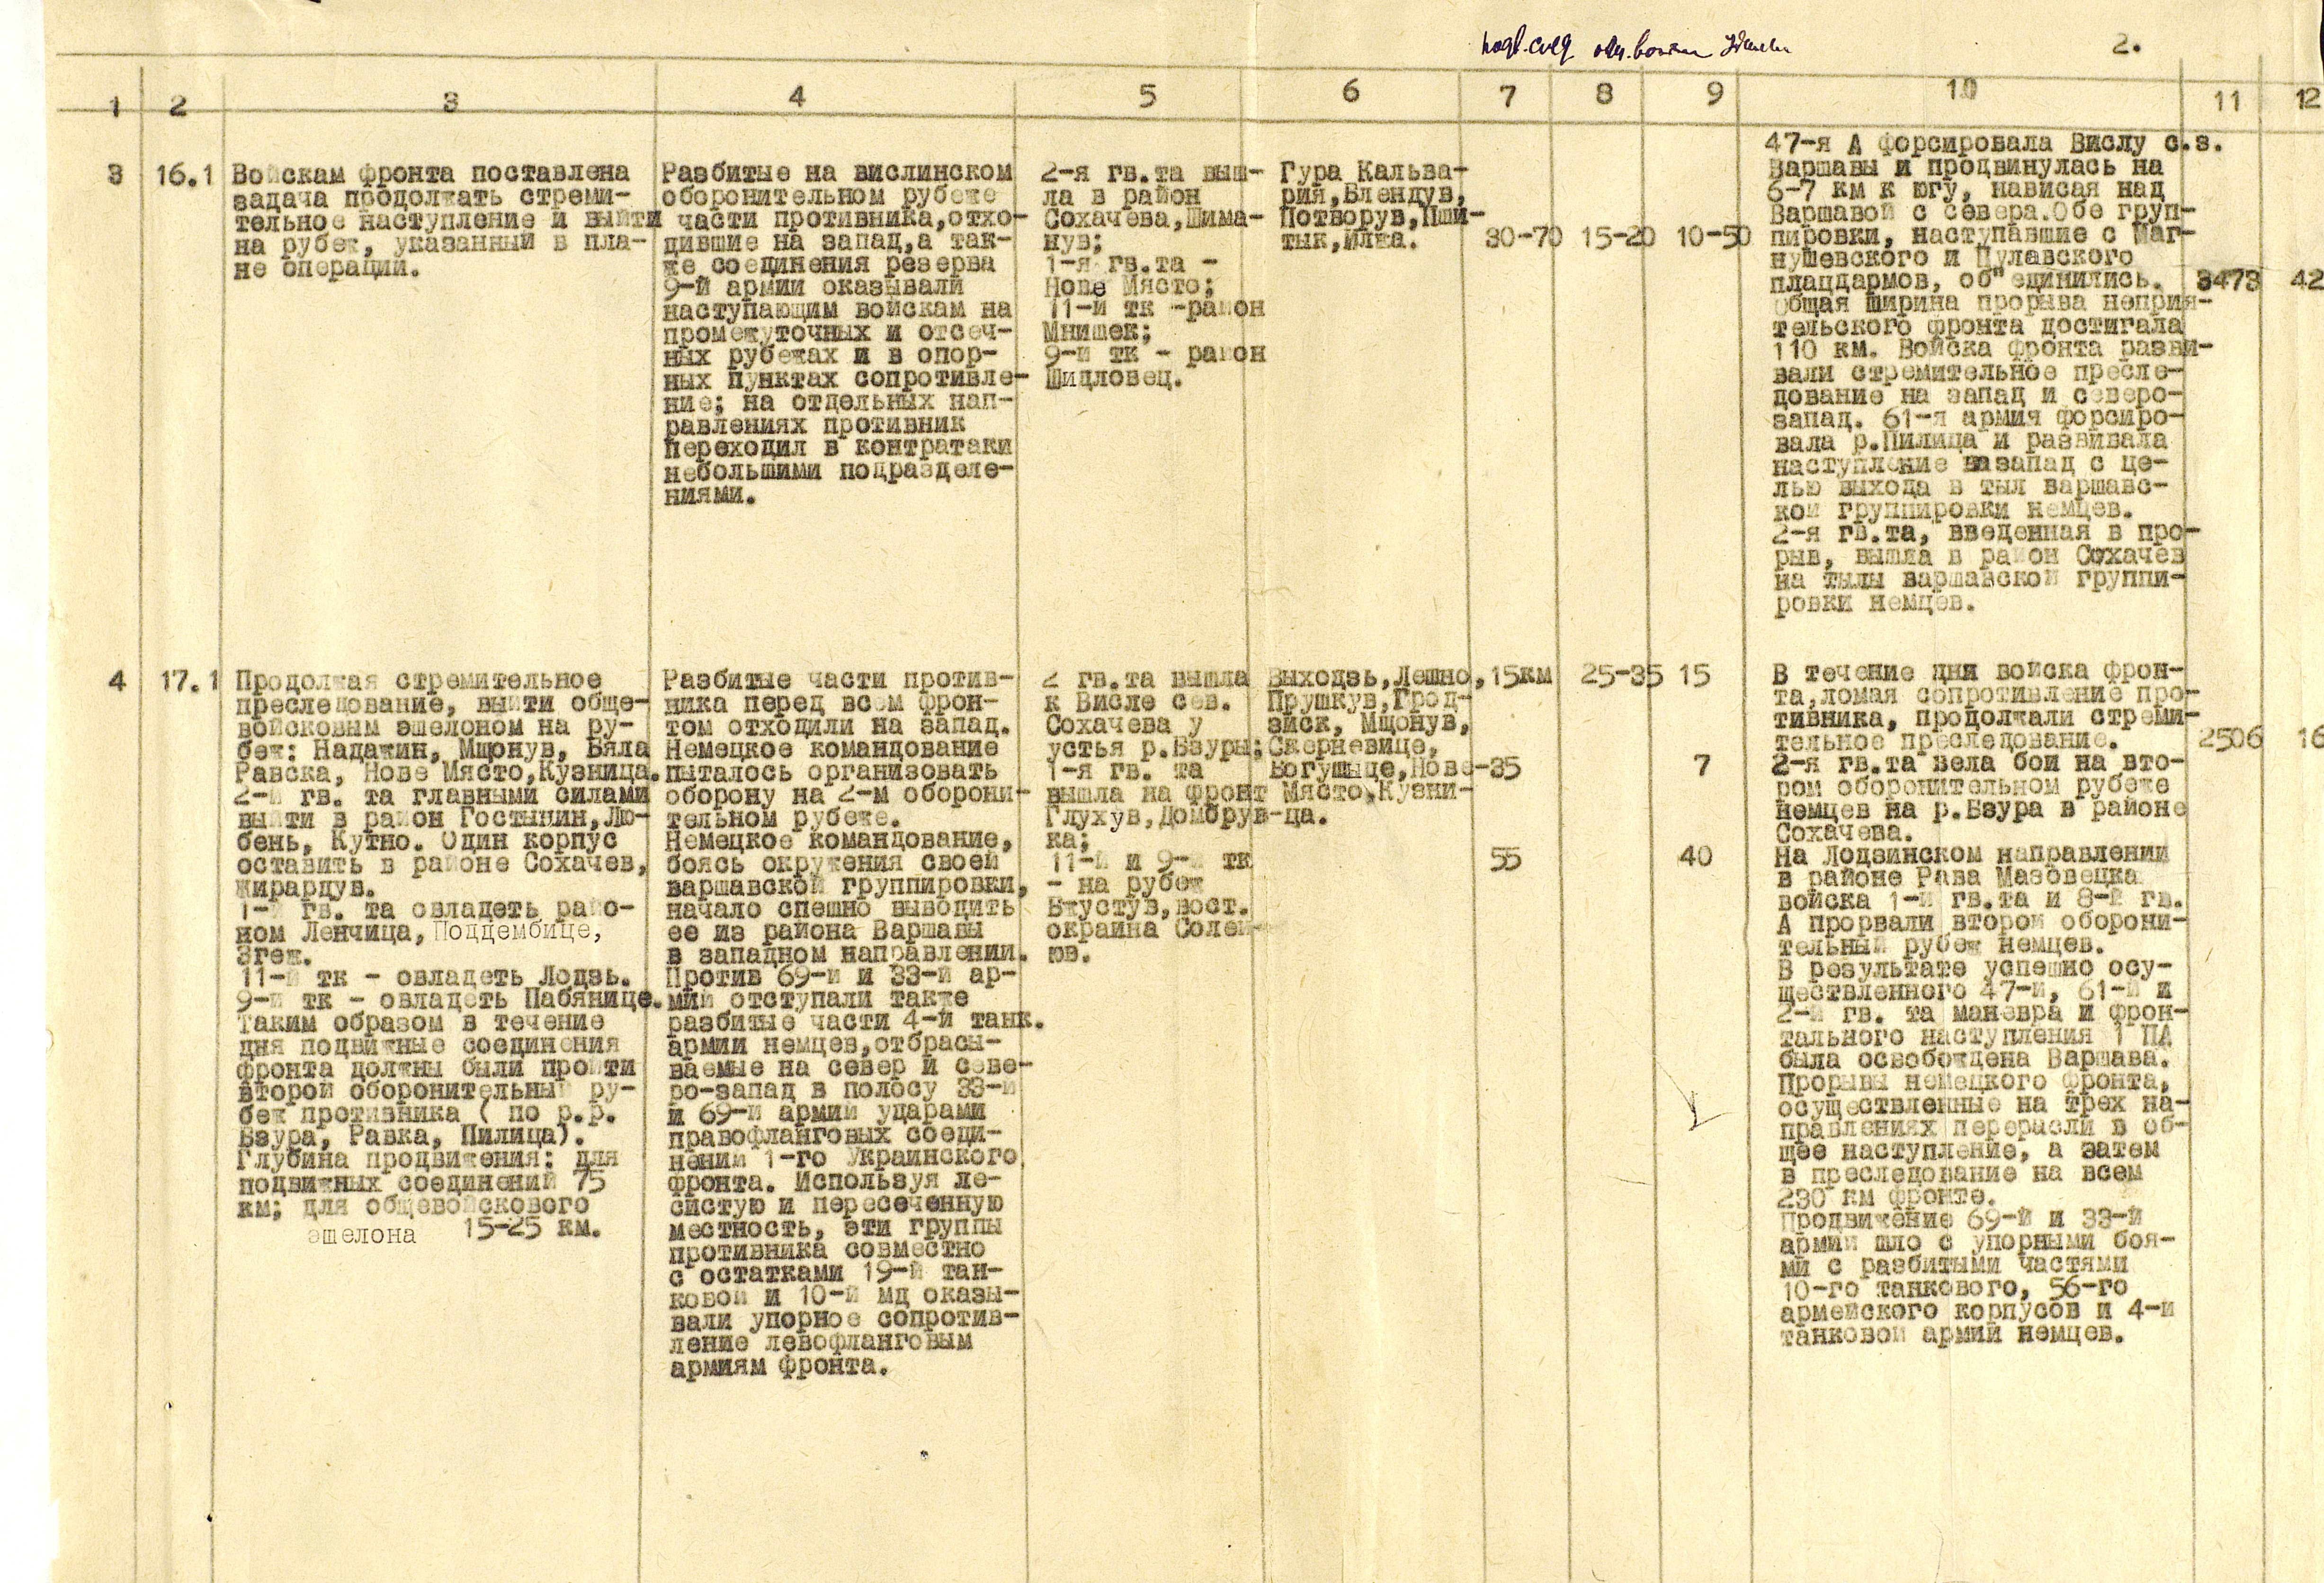 2.
1 2 3 4 5 6 7 8 9 10 11 12
3
16.1
Войскам фронта поставлена
задача продолжать стреми-
тельное наступление и выйти
на рубеж, указанный в пла-
не операции.
Разбитые на вислинском
оборонительном рубеже
части противника,отхо-
дившие на запад,а так-
же соединения резерва
9-й армии оказывали
наступающим войскам на
промежуточных и отсеч-
ных рубежах и в опор-
ных пунктах сопротивле-
ние; на отдельных нап-
равлениях противник
переходил в контратаки
небольшими подразделе-
ниями.
2-я гв.та выш-
ла в район
Сохачева,Шима-
нув;
1-я гв.та -
Нове Място;
11-й тк -район
Мнишек;
9-й тк - район
Шидловец.
Гура Кальва-
рия,Блендув,
Потворув,Пши-
тык,Илжа.
30-70
15-20
10-50
47-я А форсировала Вислу с.з.
Варшавы и продвинулась на
6-7 км к югу, нависая над
Варшавой с севера.Обе груп-
пировки, наступавшие с Маг-
нушевского и Пулавского
плацдармов, об"единились.
Общая ширина прорыва неприя-
тельского фронта достигала
110 км. Войска фронта разви-
вали стремительное пресле-
дование на запад и северо-
запад. 61-я армия форсиро-
вала р.Пилица и развивала
наступление на запад с це-
лью выхода в тыл варшавс-
кой группировки немцев.
2-я гв.та, введенная в про-
рыв, вышла в район Сохачев
на тылы варшавской группи-
ровки немцев.
3473
42
4
17.1
Продолжая стремительное
преследование, выйти обще-
войсковым эшелоном на ру-
беж: Надажин, Мщонув, Бяла
Равска, Нове Място,Кузница.
2-й гв. та главными силами
выйти в район Гостынин,Лю-
бень, Кутно. Один корпус
оставить в районе Сохачев,
Жирардув.
1-й гв. та овладеть райо-
ном Ленчица, Поддембице,
Згеж.
11-й тк - овладеть Лодзь.
9-й тк - овладеть Пабянице.
Таким образом в течение
дня подвижные соединения
фронта должны были пройти
второй оборонительный ру-
беж противника ( по р.р.
Бзура, Равка, Пилица).
Глубина продвижения: для
подвижных соединений 75
км; для общевойскового
эшелона 15-25 км.
Разбитые части против-
ника перед всем фрон-
том отходили на запад.
Немецкое командование
пыталось организовать
оборону на 2-м оборони-
тельном рубеже.
Немецкое командование,
боясь окружения своей
варшавской группировки,
начало спешно выводить
ее из района Варшавы
в западном направлении.
Против 69-й и 33-й ар-
мий отступали также
разбитые части 4-й танк.
армии немцев,отбрасы-
ваемые на север и севе-
ро-запад в полосу 33-й
и 69-й армий ударами
правофланговых соеди-
нений 1-го Украинского
фронта. Используя ле-
систую и пересеченную
местность, эти группы
противника совместно
с остатками 19-й тан-
ковой и 10-й мд оказы-
вали упорное сопротив-
ление левофланговым
армиям фронта.
2 гв.та вышла
к Висле сев.
Сохачева у
устья р.Бзуры;
1-я гв. та
вышла на фронт
Глухув,Домбрув-
ка;
11-й и 9-й тк
- на рубеж
Бжустув,вост.
окраина Солей-
юв.
Выходзь,Лешно,
Прушкув,Грод-
зйск, Мщонув,
Скерневице,
Богушыце,Нове-
Място,Кузни-
ца.
15км
35
55
25-35
15
7
40
В течение дня войска фрон-
та,ломая сопротивление про-
тивника, продолжали стреми-
тельное преследование.
2-я гв.та вела бои на вто-
ром оборонительном рубеже
немцев на р.Бзура в районе
Сохачева.
На Лодзинском направлении
в районе Рава Мазовецка
войска 1-й гв.та и 8-й гв.
А прорвали второй оборони-
тельный рубеж немцев.
В результате успешно осу-
ществленного 47-й, 61-й и
2-й гв. та маневра и фрон-
тального наступления 1 ПА
была освобождена Варшава.
Прорывы немецкого фронта,
осуществленные на трех на-
правлениях переросли в об-
щее наступление, а затем
в преследование на всем
230 км фронте.
Продвижение 69-й и 33-й
армий шло с упорными боя-
ми с разбитыми частями
10-го танкового, 56-го
армейского корпусов и 4-й
танковой армий немцев.
2506
16